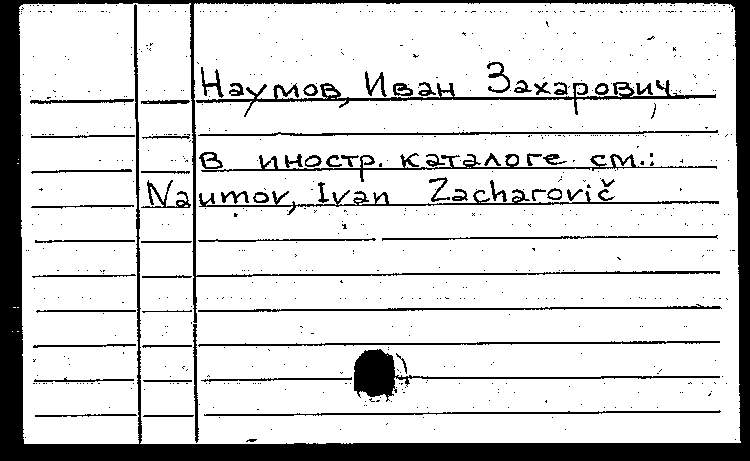 Наумов, Иван Захарович
в иностр. каталоге см.:
Naumov, Ivan Zacharovič